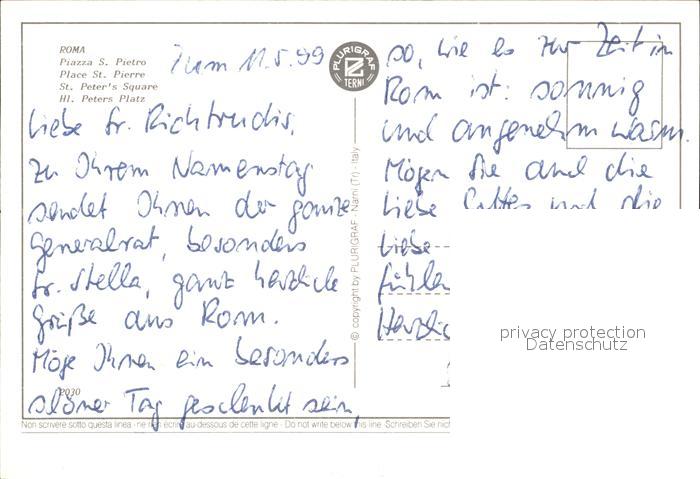 ROMA
Piazza S. Pietro
Place St. Pierre
St. Peter's Square
Hl. Peters Platz
Zum 11.5.99
PLURIGRAF
TERNI
Liebe Sr. Richtrudis,
zu Ihrem Namenstag
sendet Ihnen der ganze
Generalrat, besonders
Sr. Stella, ganz herzliche
Grüße aus Rom.
Möge Ihnen ein besonders
schöner Tag geschenkt sein,
2030
© copyright by PLURIGRAF - Narni (Tr) - Italy
so, wie es zur Zeit in
Rom ist: sonnig
und angenehm warm.
Mögen Sie auch die
Liebe Gottes und die
Liebe
fühlen
Herzlic
privacy protection
Datenschutz
Non scrivere sotto questa linea - ne rien écrire au-dessous de cette ligne - Do not write below this line - Schreiben Sie nicht